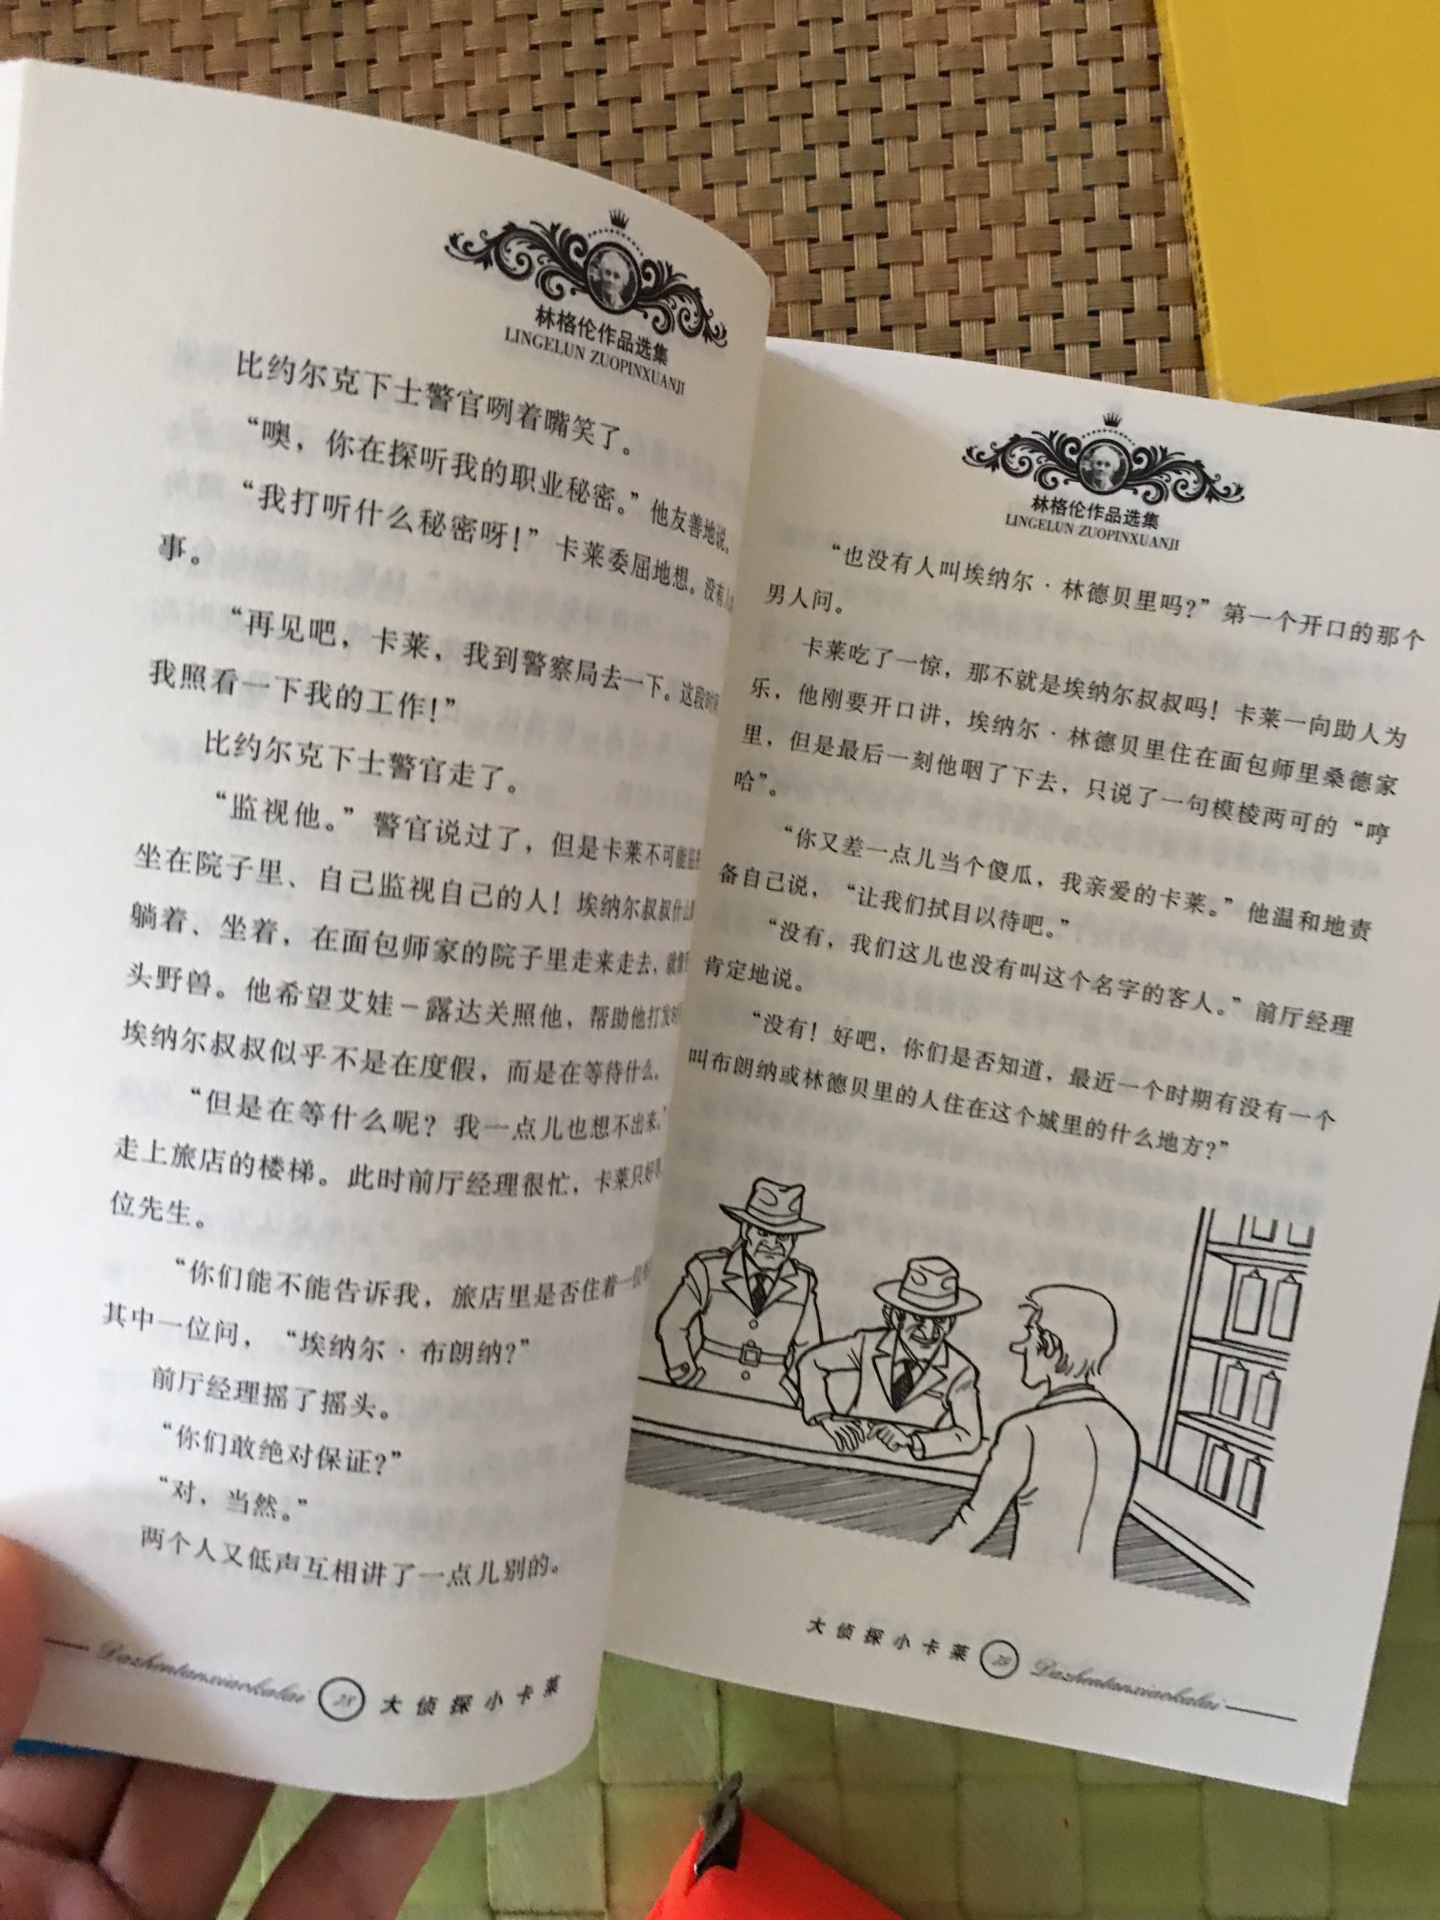 林格伦作品选集
LINGELUN ZUOPINXUANJI
比约尔克下士警官咧着嘴笑了。
“噢，你在探听我的职业秘密。”他友善地说。
“我打听什么秘密呀！”卡莱委屈地想。没有
事。
“再见吧，卡莱，我到警察局去一下。这段时
我照看一下我的工作！”
比约尔克下士警官走了。
“监视他。”警官说过了，但是卡莱不可能
坐在院子里、自己监视自己的人！埃纳尔叔叔什么
躺着、坐着，在面包师家的院子里走来走去，就像
头野兽。他希望艾娃－露达关照他，帮助他打发
埃纳尔叔叔似乎不是在度假，而是在等待什么。
“但是在等什么呢？我一点儿也想不出来。”
走上旅店的楼梯。此时前厅经理很忙，卡莱只好
位先生。
“你们能不能告诉我，旅店里是否住着一位
其中一位问，“埃纳尔·布朗纳？”
前厅经理摇了摇头。
“你们敢绝对保证？”
“对，当然。”
两个人又低声互相讲了一点儿别的。
Dazhentanxiaokalai 28 大侦探小卡莱
林格伦作品选集
LINGELUN ZUOPINXUANJI
“也没有人叫埃纳尔·林德贝里吗？”第一个开口的那个
男人问。
卡莱吃了一惊，那不就是埃纳尔叔叔吗！卡莱一向助人为
乐，他刚要开口讲，埃纳尔·林德贝里住在面包师里桑德家
里，但是最后一刻他咽了下去，只说了一句模棱两可的“哼
哈”。
“你又差一点儿当个傻瓜，我亲爱的卡莱。”他温和地责
备自己说，“让我们拭目以待吧。”
“没有，我们这儿也没有叫这个名字的客人。”前厅经理
肯定地说。
“没有！好吧，你们是否知道，最近一个时期有没有一个
叫布朗纳或林德贝里的人住在这个城里的什么地方？”
大侦探小卡莱 29 Dazhentanxiaokalai